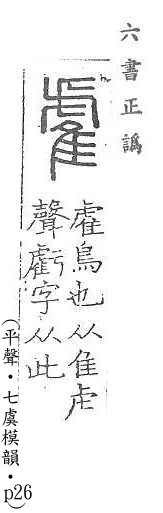 六書正譌
雐
雐鳥也从隹虍
聲虧字从此
（平聲．七虞模韻．
p26